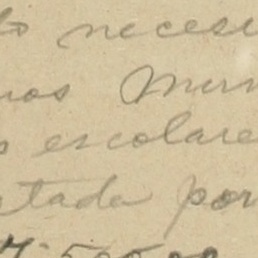 to neces
nos Mun
s escolare
tada por